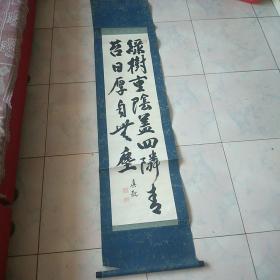 綠樹重陰蓋四隣青
苔日厚自無塵